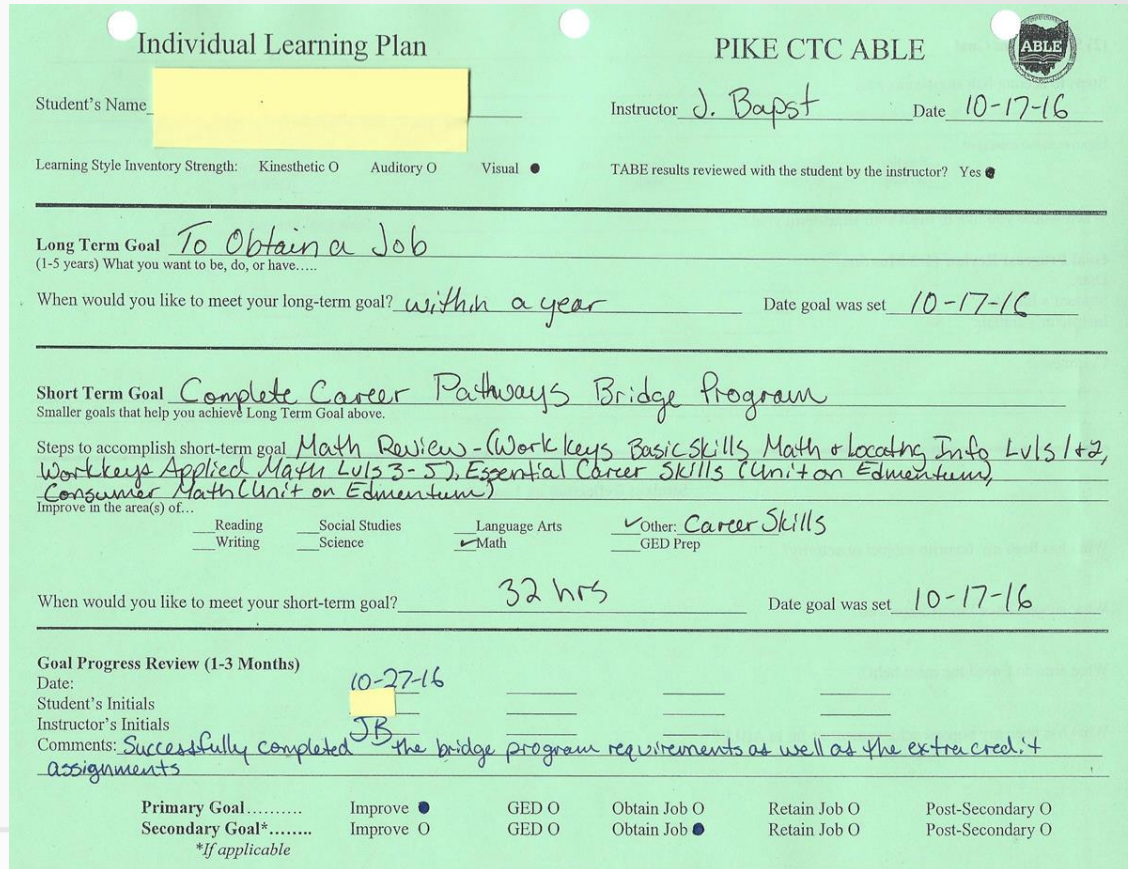 Individual Learning Plan PIKE CTC ABLE ABLE
Student's Name Instructor J. Bapst Date 10-17-16
Learning Style Inventory Strength: Kinesthetic O Auditory O Visual ● TABE results reviewed with the student by the instructor? Yes ●
Long Term Goal To Obtain a Job
(1-5 years) What you want to be, do, or have.....
When would you like to meet your long-term goal? within a year Date goal was set 10-17-16
Short Term Goal Complete Career Pathways Bridge Program
Smaller goals that help you achieve Long Term Goal above.
Steps to accomplish short-term goal Math Review - (Work keys Basic Skills Math + Locatng Info Lvls 1+2,
Workkeys Applied Math Lvls 3-5), Essential Career Skills (Unit on Edmentum),
Consumer Math (Unit on Edmentum)
Improve in the area(s) of...
__Reading __Social Studies __Language Arts ✓Other: Career Skills
__Writing __Science ✓Math __GED Prep
When would you like to meet your short-term goal? 32 hrs Date goal was set 10-17-16
Goal Progress Review (1-3 Months)
Date: 10-27-16
Student's Initials
Instructor's Initials JB
Comments: Successfully completed the bridge program requirements as well as the extra credit
assignments
Primary Goal.......... Improve ● GED O Obtain Job O Retain Job O Post-Secondary O
Secondary Goal*........ Improve O GED O Obtain Job ● Retain Job O Post-Secondary O
*If applicable